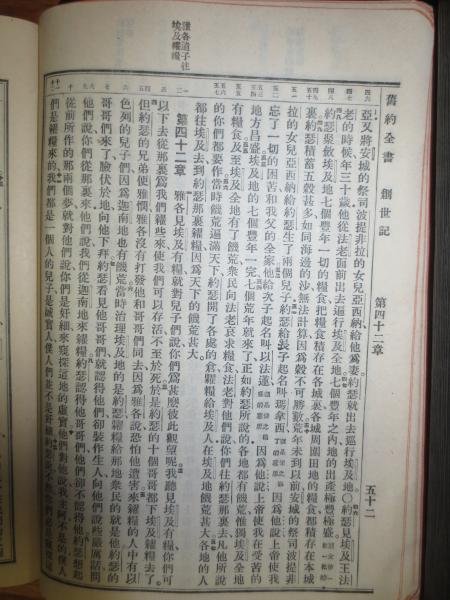 舊約全書 創世記 第四十二章 五十二
亞又將安城的祭司波提非拉的女兒亞西納給他爲妻約瑟就出去巡行埃及地〇約瑟見埃及王法
老的時候年三十歲他從法老面前出去遍行埃及全地七個豐年之內地的出產極豐盛
約瑟聚斂埃及地七個豐年一切的糧食把糧食積存在各城裏各城周圍田地的糧食都積存在本城
裏約瑟積蓄五穀甚多如同海邊的沙無法計算因爲穀不可勝數荒年未到以前安城的祭司波提非
拉的女兒亞西納給約瑟生了兩個兒子約瑟給長子起名叫瑪拿西就是使之忘了的意思因爲他說上帝使我
忘了一切的困苦和我父的全家他給次子起名叫以法蓮因爲他說上帝使我在受苦的
地方昌盛埃及地的七個豐年一完七個荒年就來了正如約瑟所說的各地都有饑荒惟獨埃及全地
有糧食及至埃及全地有了饑荒衆民向法老哀求糧食法老對他們說你們往約瑟那裏去凡他所說
的你們都要作當時饑荒遍滿天下約瑟開了各處的倉糶糧給埃及人在埃及地饑荒甚大各地的人
都往埃及去到約瑟那裏糴糧因爲天下的饑荒甚大
雅各遣子往
埃及糴糧
第四十二章 雅各見埃及有糧就對兒子們說你們爲甚麼彼此觀望呢我聽見埃及有糧你們可
以下去從那裏爲我們糴些來使我們可以存活不至於死於是約瑟的十個哥哥都下埃及糴糧去了
但約瑟的兄弟便雅憫雅各沒有打發他和哥哥們同去因爲雅各說恐怕他遭害來糴糧的人中有以
色列的兒子們因爲迦南地也有饑荒當時治理埃及地的是約瑟糶糧給那地衆民的就是他約瑟的
哥哥們來了臉伏於地向他下拜約瑟看見他哥哥們就認得他們卻裝作生人向他們說些嚴厲話問
他們說你們從那裏來他們說我們從迦南地來糴糧約瑟認得他哥哥們他們卻不認得他約瑟想起
從前所作的那兩個夢就對他們說你們是奸細來窺探這地的虛實他們對他說我主阿不是的僕人
們是糴糧來的我們都是一個人的兒子是誠實人僕人們並不是奸細約瑟說不然你們必是窺探這